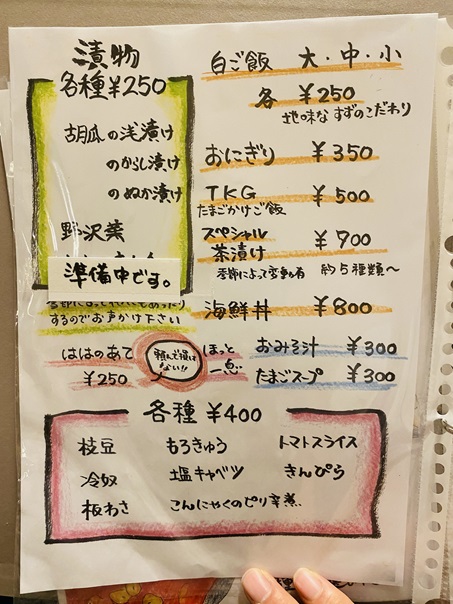 漬物
各種¥250
胡瓜の浅漬け
のからし漬け
のぬか漬け
野沢菜
準備中です。
するのでお声かけ下さい
ははのあて
¥250
頼んで損は
ない!!
ほっと
一息
白ご飯 大・中・小
各 ¥250
地味な すずのこだわり
おにぎり ¥350
TKG ¥500
たまごかけご飯
スペシャル
茶漬け ¥700
季節によって変更有 約5種類〜
海鮮丼 ¥800
おみそ汁 ¥300
たまごスープ ¥300
各種 ¥400
枝豆 もろきゅう トマトスライス
冷奴 塩キャベツ きんぴら
板わさ こんにゃくのピリ辛煮